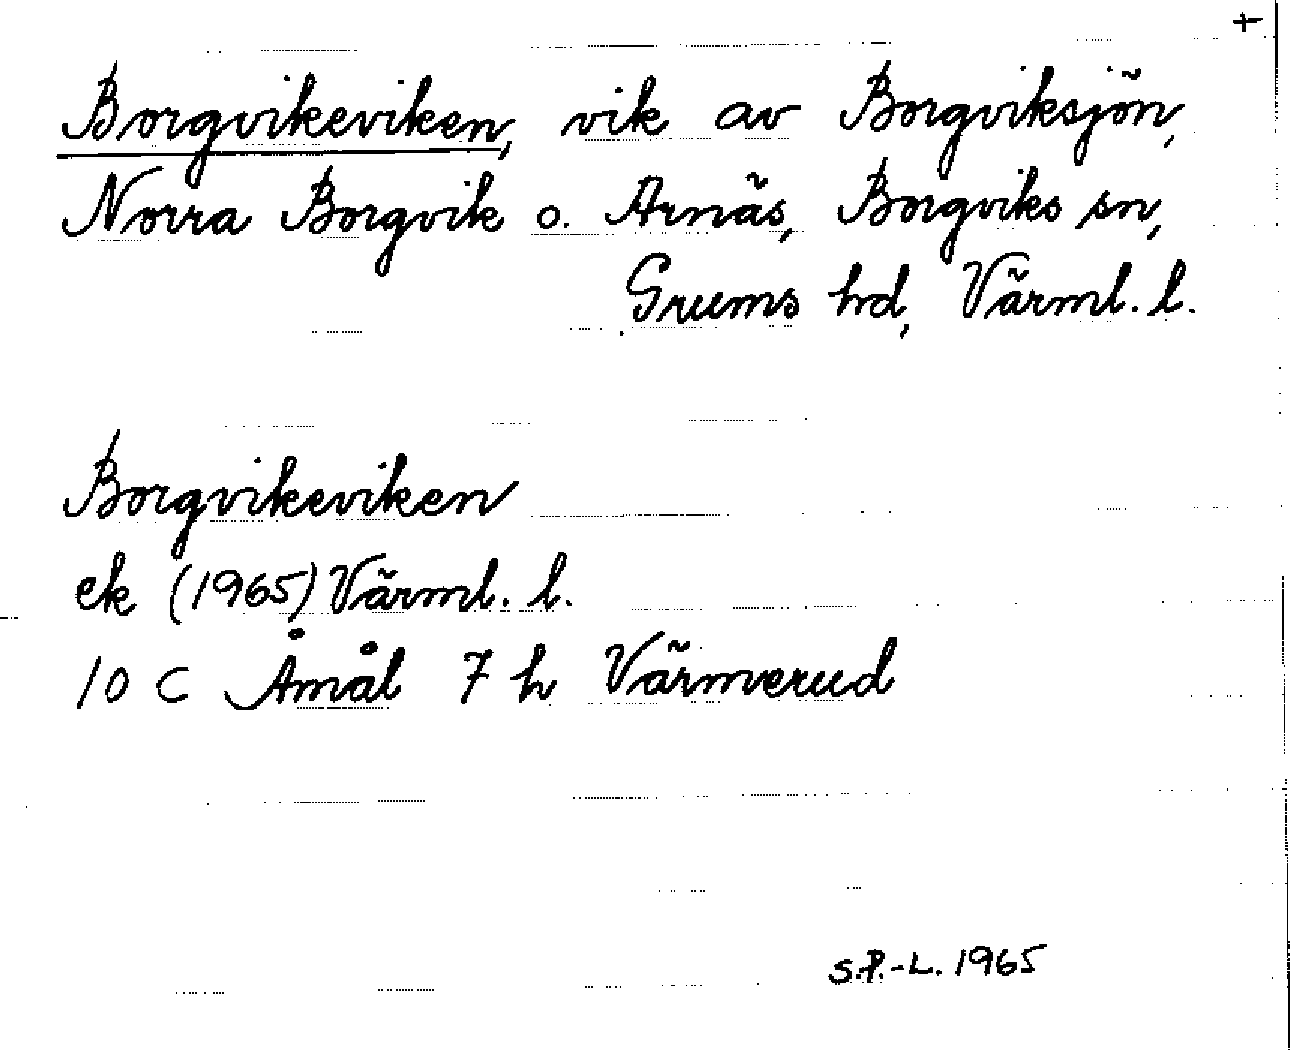 +
Borgvikeviken, vik av Borgviksjön,
Norra Borgvik o. Arnäs, Borgviks sn,
Grums hd, Värml. l.
Borgvikeviken
ek (1965) Värml. l.
10 C Åmål 7 h Värmerud
S.P.-L. 1965